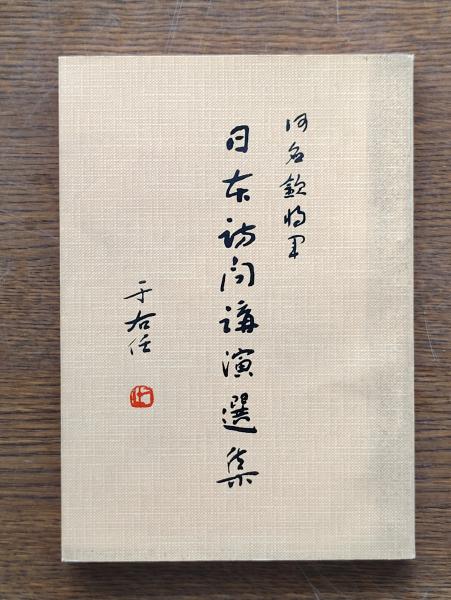 何應欽將軍
日本訪問講演選集
于右任